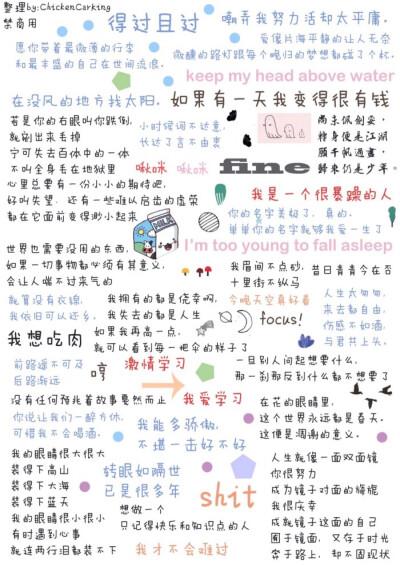 整理by:ChickenCarking
禁商用
得过且过
嘲弄我努力活却太平庸.
爱很片海平静的让人无奈
愿你带着最微薄的行李
和最丰盛的自己在世间流浪.
微醺的路灯跟每个晚归的梦想都碰了个杯.
keep my head above water
在没风的地方找太阳.
如果有一天我变得很有钱
若是你的右眼叫你跌倒,
就剜出来丢掉
宁可失去百体中的一体
不叫全身丢在地狱里
小时候词不达意,
长达了言不由衷
南京佩剑妥,
转身便是江湖
愿千帆过尽,
归来仍是少年.
啾咪
啾咪
fine
心里总要有一份小小的期待吧,
好叫失望, 还有一些难以启齿的虚荣
都在它面前变得渺小起来
我是一个很暴躁的人
你的名字美极了, 真的.
单单你的名字就够我爱一生了
MILK
I'm too young to fall asleep
世界也需要没用的东西,
如果一切事物都必须有其意义,
会让人喘不过来气的
我眉间不点砂,
十里街不纵马
昔日青青今在否
就算没有衣锦,
我依旧可以还乡.
我拥有的都是侥幸啊,
我失去的都是人生
今晚天空真好看
人生太匆匆,
来去都自由,
伤感不如酒,
与君共上头.
我想吃肉
如果我再高一点,
就可以看到每一把伞的样子了
focus!
前路遥不可及
后路渐远
哼
激情学习
一旦别人问起想要什么,
那一刹那反到什么都不想要了
没有任何预兆着故事戛然而止
我爱学习
你说让我们一醉方休,
可惜我不会喝酒.
我能多骄傲,
不堪一击好不好
在花的眼睛里,
这个世界永远都是春天.
这便是凋谢的意义.
我的眼睛很大很大
装得下高山
装得下大海
装得下蓝天
我的眼睛很小很小
有时遇到心事
就连两行泪都装不下
转眼如隔世
已是很多年
shit
想做一个
只记得快乐和知识点的人
我才不会难过
人生就像一面双面镜
你很努力
成为镜子对面的旖旎
我很庆幸
成就镜子这面的自己
囿于镜面, 又存于时光
奔于路上, 却不固现状